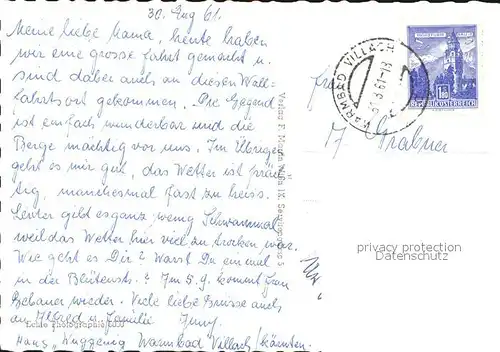 30. Aug 61.
Meine liebe Mama, heute haben
wir eine grosse Fahrt gemacht u.
sind dabei auch an diesen Wall-
fahrtsort gekommen. Die Gegend
ist einfach wunderbar und die
Berge mächtig vor uns. Im Übrigen
geht es mir gut, das Wetter ist präch
tig, manchesmal fast zu heiss.
Leider gibt es ganz wenig Schwammal
weil das Wetter hier viel zu trocken war.
Wie geht es Dir? Warst Du einmal
in der Blütenstr.? Im 5.9. kommt Frau
Gebauer wieder. Viele liebe Grüsse auch
an Alfred u. Familie
Haus Warmbad Villach/Kärnten.
Echte Photographie
Verlag P.
WARMBAD VILLACH
REPUBLIK ÖSTERREICH
1.80
J. Grabner
privacy protection
Datenschutz